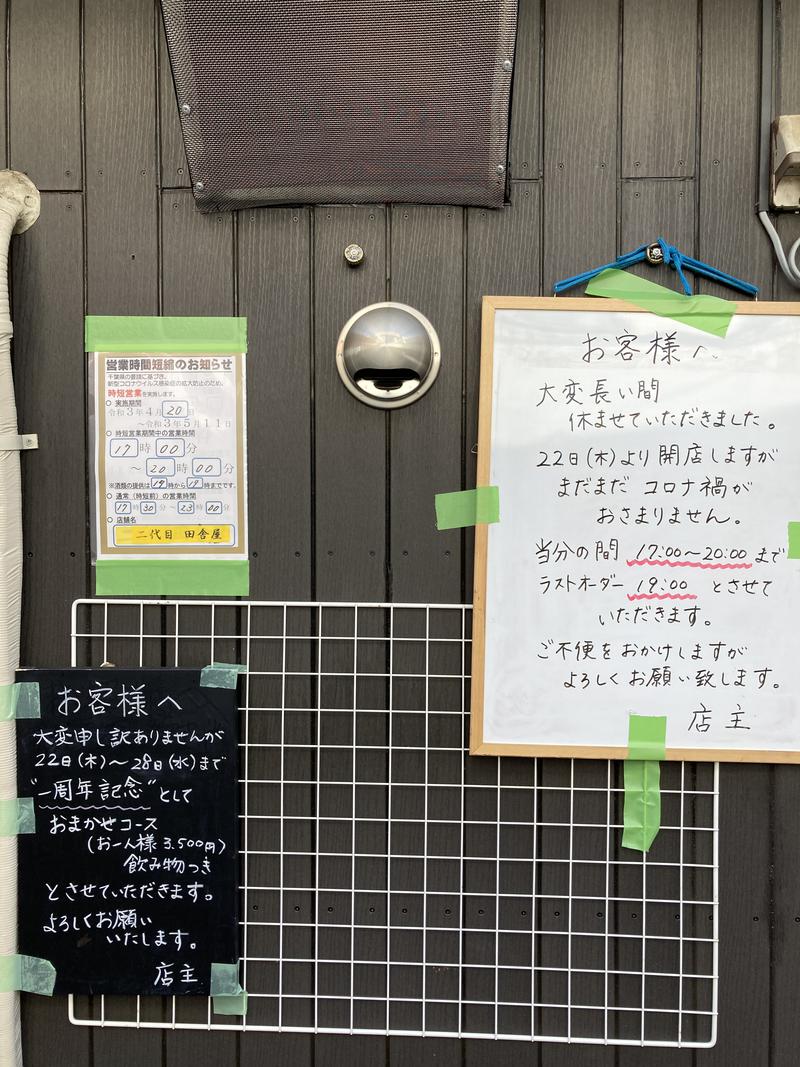 営業時間短縮のお知らせ
千葉県の要請に基づき、
新型コロナウイルス感染症の拡大防止のため、
時短営業を実施します。
○ 実施期間
令和3年4月20日
～令和3年5月11日
○ 時短営業期間中の営業時間
17時00分
～20時00分
※酒類の提供は 時から19時までです。
○ 通常(時短前)の営業時間
17時30分～23時00分
○ 店舗名
二代目 田舎屋
お客様へ
大変長い間
休ませていただきました。
22日(木)より開店しますが
まだまだコロナ禍が
おさまりません。
当分の間 17:00～20:00まで
ラストオーダー 19:00 とさせて
いただきます。
ご不便をおかけしますが
よろしくお願い致します。
店主
お客様へ
大変申し訳ありませんが
22日(木)～28日(水)まで
"一周年記念"として
おまかせコース
(お一人様3.500円)
飲み物つき
とさせていただきます。
よろしくお願い
いたします。
店主